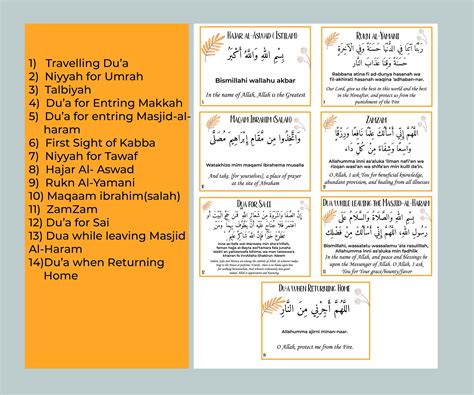 1) Travelling Du'a
2) Niyyah for Umrah
3) Talbiyah
4) Du'a for Entring Makkah
5) Du'a for entring Masjid-al-
haram
6) First Sight of Kabba
7) Niyyah for Tawaf
8) Hajar Al- Aswad
9) Rukn Al-Yamani
10) Maqaam ibrahim(salah)
11) ZamZam
12) Du'a for Sai
13) Dua while leaving Masjid
Al-Haram
14)Du'a when Returning
Home
Hajar al-Aswad ( Istilam)
بِسْمِ اللَّهِ وَاللَّهُ أَكْبَرُ
Bismillahi wallahu akbar
In the name of Allah, Allah is the Greatest
Rukn al-Yamani
رَبَّنَا آتِنَا فِي الدُّنْيَا حَسَنَةً وَفِي الْآخِرَةِ
حَسَنَةً وَقِنَا عَذَابَ النَّارِ
Rabbana atina fi ad-dunya hasanah wa
fil-akhirati hasanah waqina 'adhaban-nar.
Our Lord, give us the best in this world and the best
in the Hereafter, and protect us from the
punishment of the Fire.
Maqam Ibrahim (Salah)
وَاتَّخِذُوا مِن مَّقَامِ إِبْرَاهِيمَ مُصَلًّى
Watakhizo mim maqami ibraheema musalla
And take, [for yourselves], a place of prayer
at the site of Abraham
Zamzam
اللَّهُمَّ إِنِّي أَسْأَلُكَ عِلْمًا نَافِعًا وَرِزْقًا
وَاسِعًا وَشِفَاءً مِنْ كُلِّ دَاءٍ
Allahumma inni as'aluka 'ilman nafi'an
O Allah, I ask You for beneficial knowledge,
abundant provision, and healing from all illnesses
Dua for Sa'ei
Dua while leaving the Masjid al-Haram
بِسْمِ اللهِ وَالصَّلَاةُ وَالسَّلَامُ عَلَى
رَسُولِ اللهِ، اللَّهُمَّ إِنِّي أَسْأَلُكَ مِنْ فَضْلِكَ
Bismillah, wassalatu wassalamu 'ala rasulillah,
Allahumma inni as'aluka min fadhlika
In the name of Allah, and peace and blessings be
upon the Messenger of Allah. O Allah, I ask
You for Your grace/bounty/favor
Dua when Returning Home
اللَّهُمَّ أَجِرْنِي مِنَ النَّارِ
Allahumma ajirni minan-naar.
O Allah, protect me from the Fire.